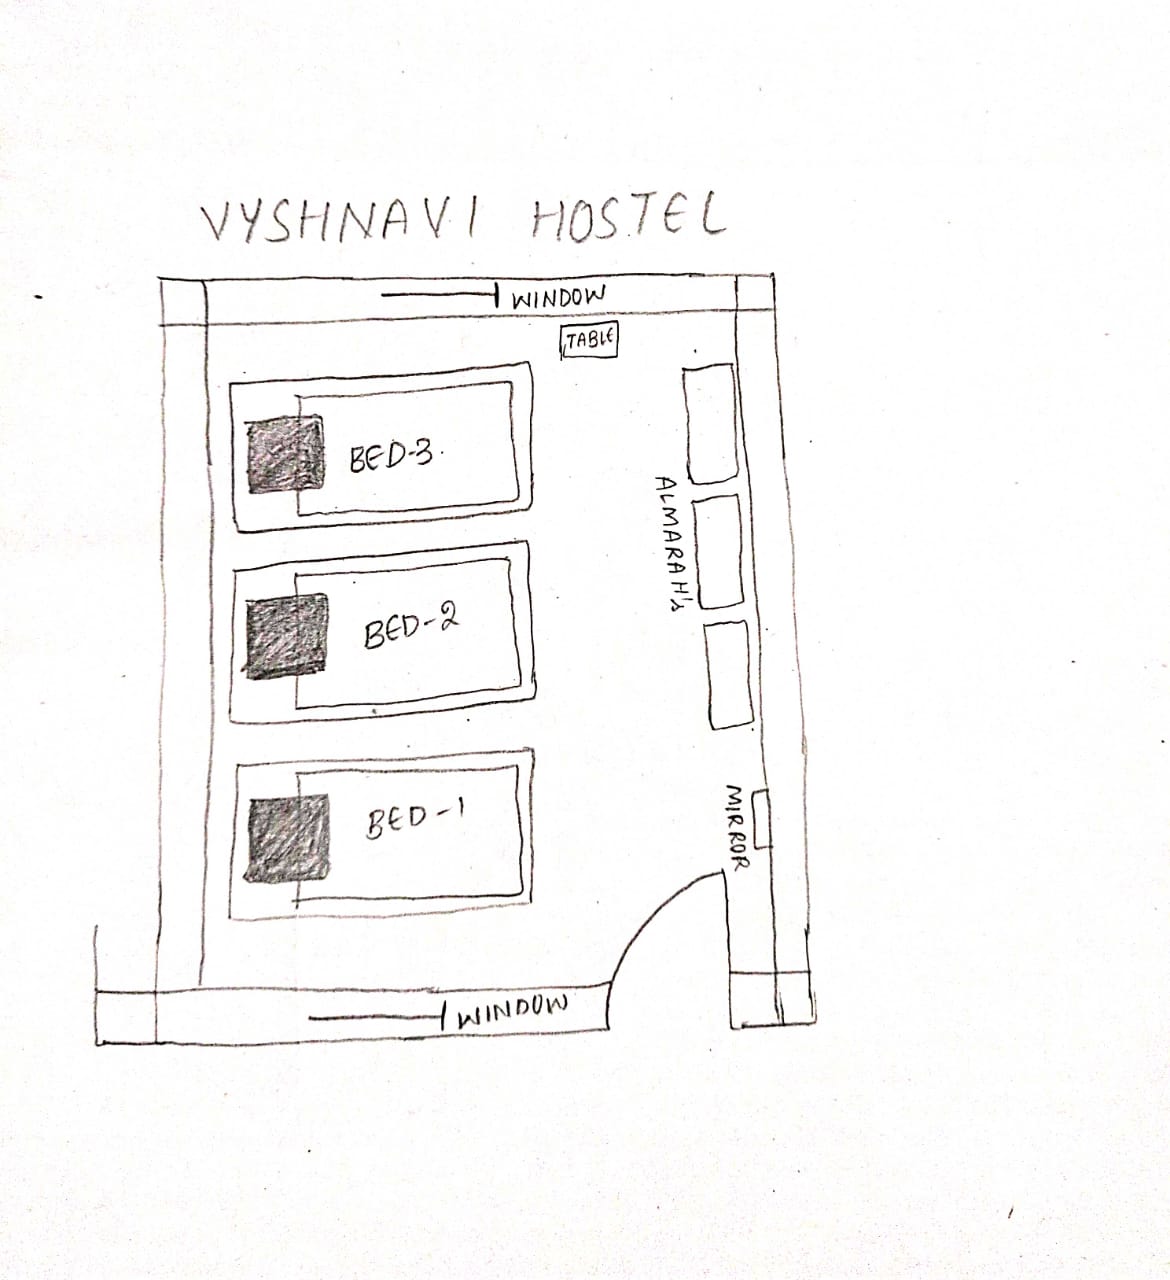 VYSHNAVI HOSTEL
WINDOW
TABLE
BED-3.
ALMARAH's
BED-2
BED-1
MIRROR
WINDOW